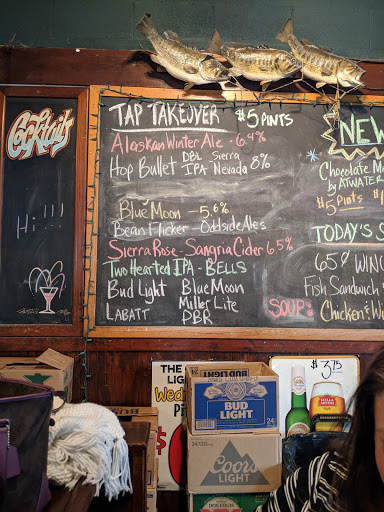 Cocktails
Hi!!!
TAP TAKEOVER $5 PINTS
Alaskan Winter Ale - 6.4%
Hop Bullet DBL IPA Sierra Nevada 8%
Blue Moon - 5.6%
Bean Flicker - Oddside Ales
Sierra Rose - Sangria Cider 6.5%
Two Hearted IPA - BELLS
Bud Light Blue Moon
Miller Lite
LABATT PBR
NEW
Chocolate
by ATWATER
$5 Pints
TODAY'S
65¢ WING
Fish Sandwich
SOUP:
Chicken &
THE
LIG
Wed
Pi
$
BUD LIGHT
BUD LIGHT
24
Coors
LIGHT
DOS EQUIS
$3.75
STELLA
ARTOIS